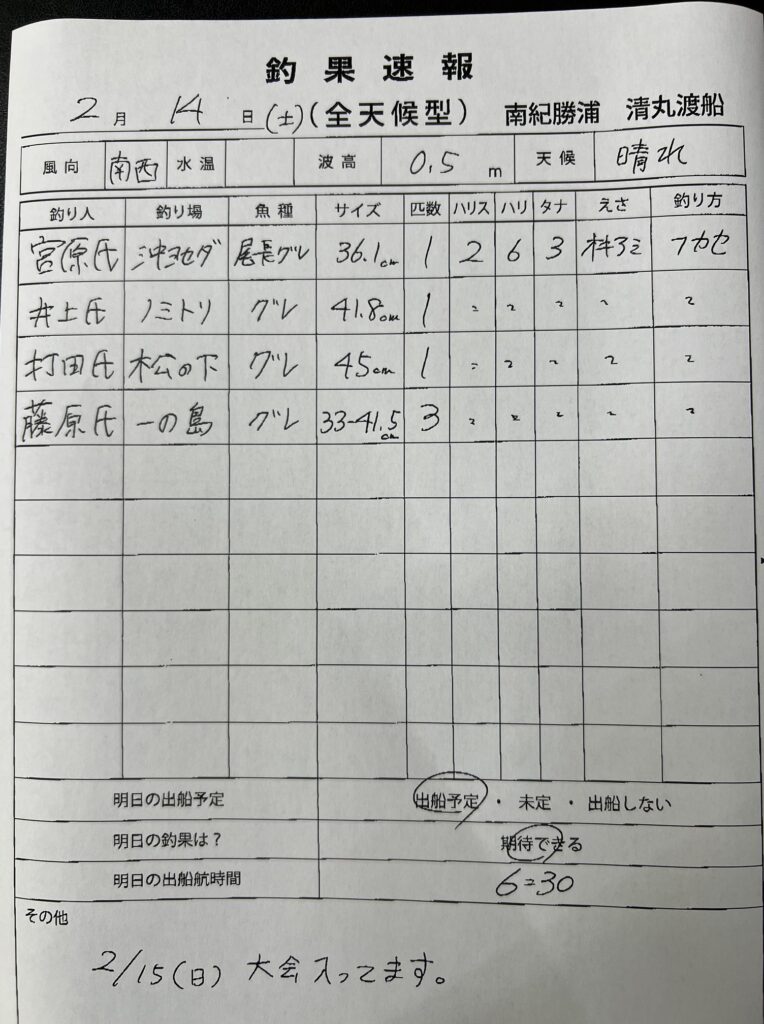 釣果速報
2月 14 日(土)(全天候型) 南紀勝浦 清丸渡船
風向 南西 水温 波高 0.5 m 天候 晴れ
釣り人 釣り場 魚種 サイズ 匹数 ハリス ハリ タナ えさ 釣り方
宮原氏 沖ヨセダ 尾長グレ 36.1cm 1 2 6 3 オキアミ フカセ
井上氏 ノミトリ グレ 41.8cm 1 〃 〃 〃 〃 〃
打田氏 松の下 グレ 45cm 1 〃 〃 〃 〃 〃
藤原氏 一の島 グレ 33-41.5cm 3 〃 〃 〃 〃 〃
明日の出船予定 出船予定 ・ 未定 ・ 出船しない
明日の釣果は? 期待できる
明日の出船航時間 6=30
その他
2/15(日) 大会入ってます。